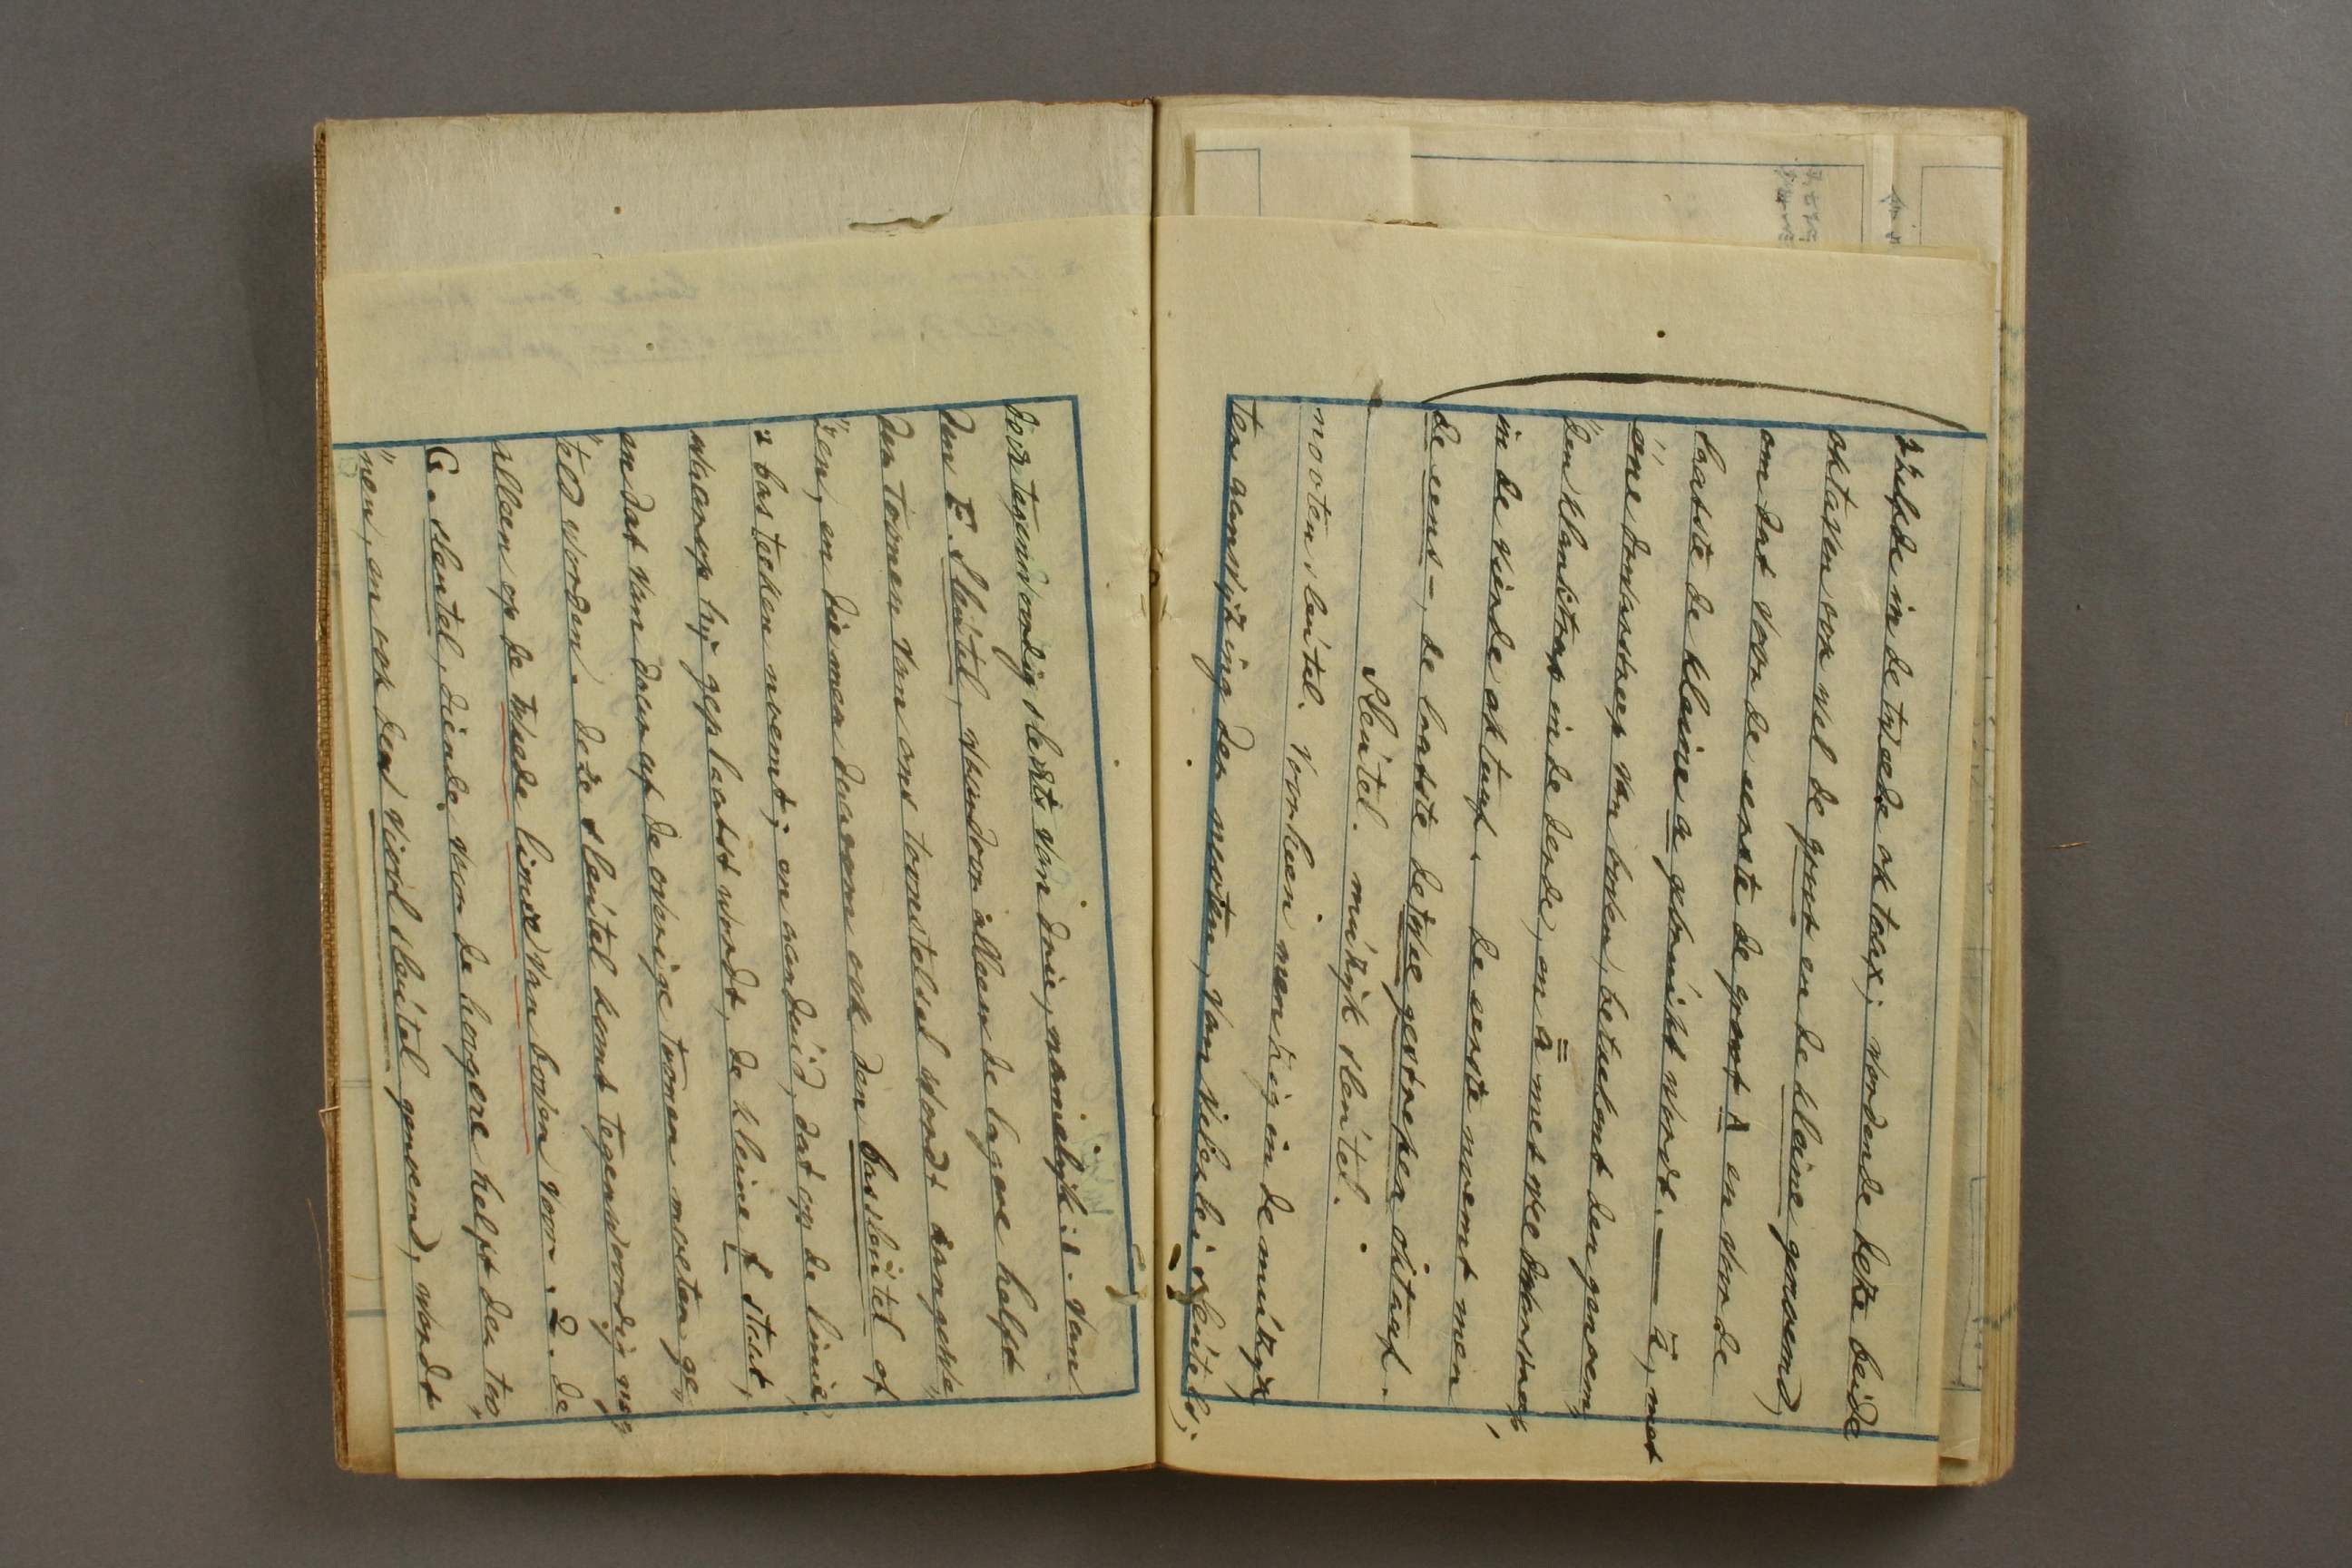 zelfde in de tweede oktaaf; wordende deze beide
oktaven ook wel de groot en de kleine genoemd,
om dat voor de eerste de groot A en voor de
laatste de kleine a gebruikt wordt. — ā, met
éne dwarsstreep van boven, beteekent den genoem„
„den klanktrap in de derde, en a̿ met twee dwarsstreep,
in de vierde oktaaf. de eerste noemt men
de eens-, de laatste de twee gestrepen oktaaf.
Sleutel. muzijk sleutel.
nooten sleutel. voorheen men zig in de muzijk
ter aanwijzing der nooten, van velerlei sleutels;
doch tegenwoordig slechts van drie, namelijk: 1. van
den F. Sleutel, waardoor alleen de lagere helft
der toonen van ons toonstelsel wordt aangewe„
„zen, en die men daarom ook den bassleutel of
't bas teeken noemt; en aanduid, dat op de linie,
waarop hij geplaatst wordt, de kleine f staat,
en dat van daar af de overige toonen moeten ge„
„teld worden. deze sleutel komt tegenwoordig nog
alleen op de twede linie van boven voor. 2. de
G. sleutel, diende voor de hoogere helft der too„
„nen, en ook den viool sleutel genoemd, wordt